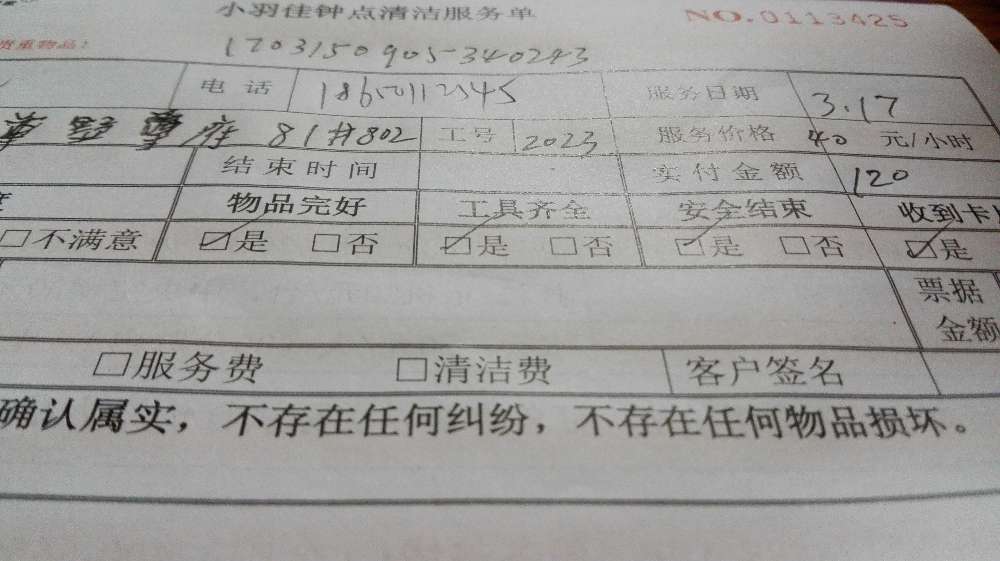 小羽佳钟点清洁服务单 NO.0113425
贵重物品！
1703150905-340243
电话 18600112345 服务日期 3.17
座 81#802 工号 2023 服务价格 40 元/小时
结束时间 实付金额 120
物品完好 工具齐全 安全结束 收到卡
□不满意 ☑是 □否 ☑是 □否 ☑是 □否 ☑是
票据
金额
□服务费 □清洁费 客户签名
确认属实，不存在任何纠纷，不存在任何物品损坏。